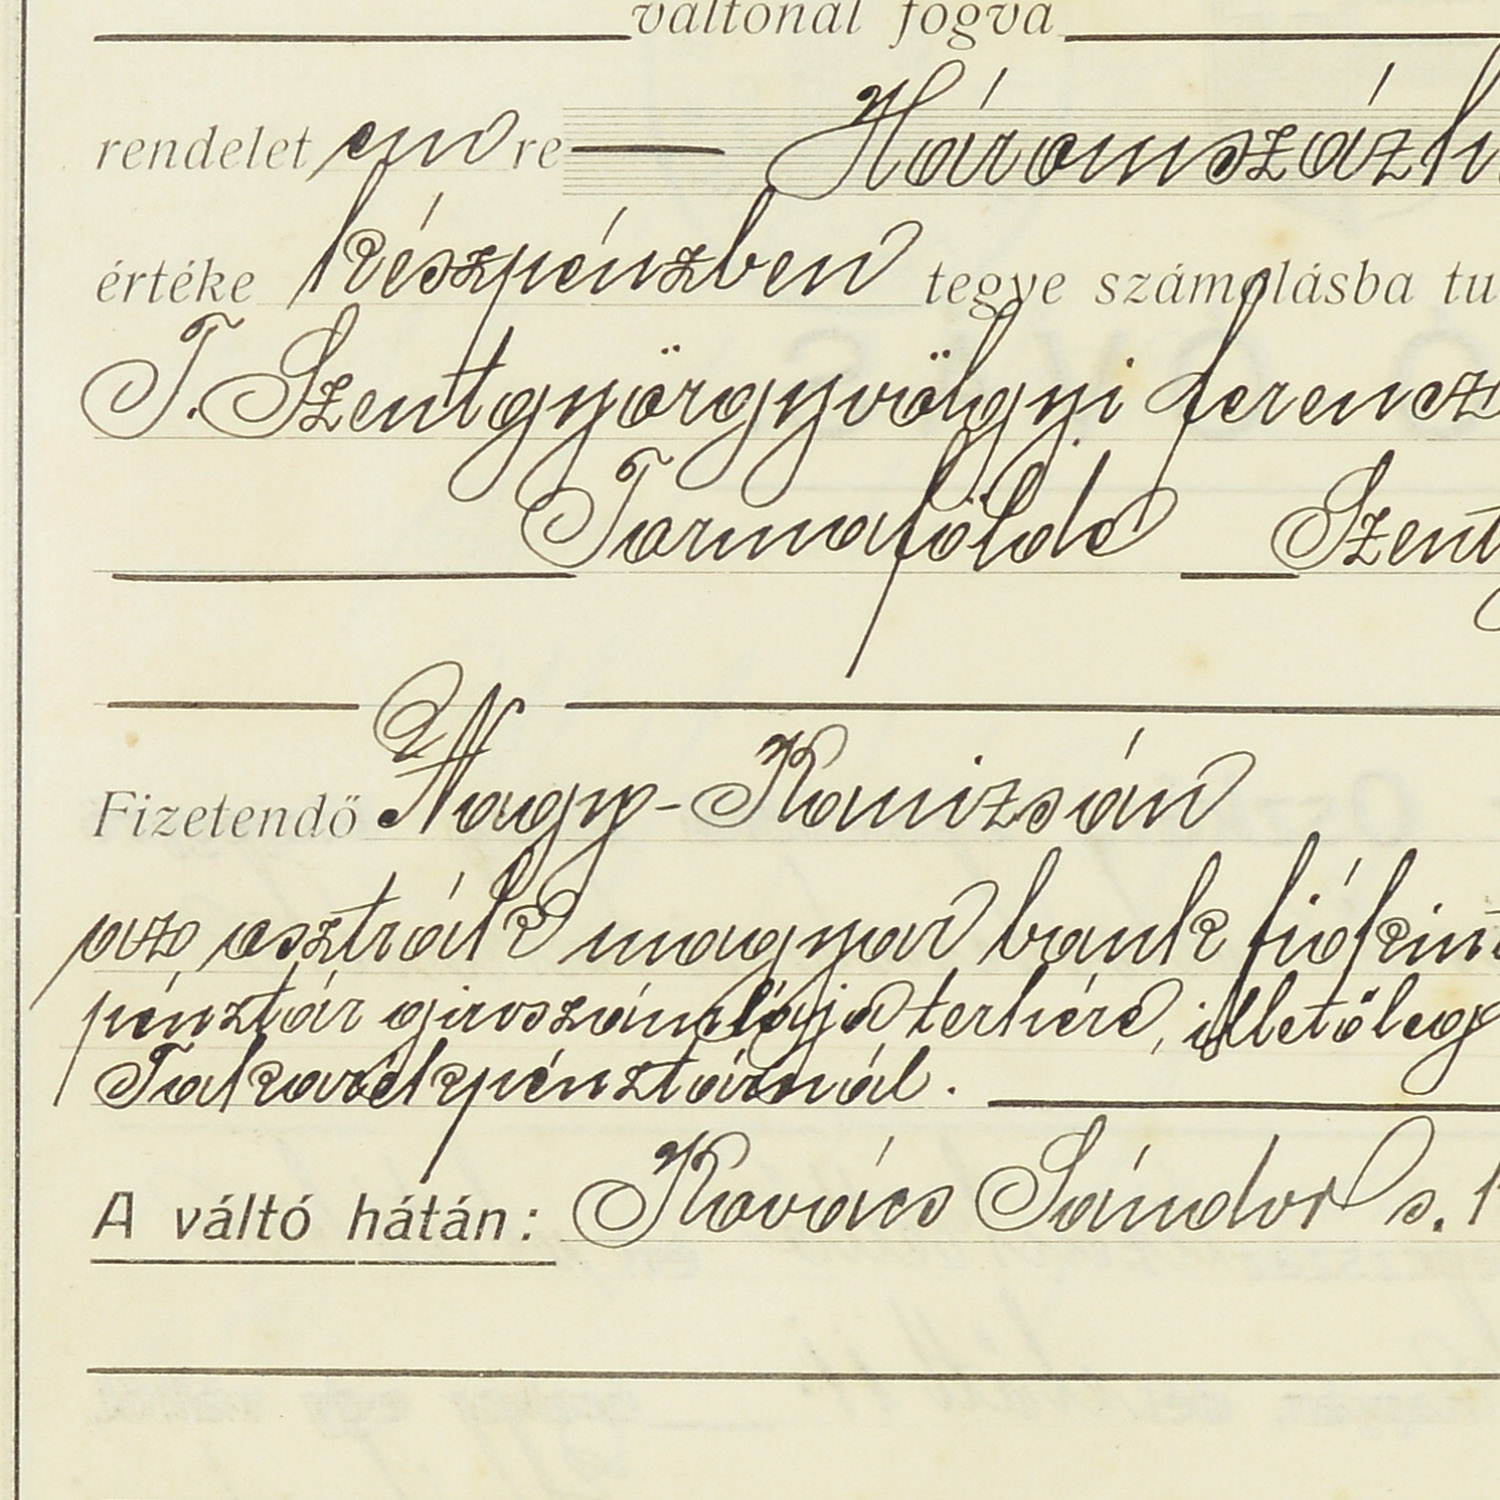 váltónál fogva
rendelet emre Háromszázh
értéke készpénzben tegye számolásba tu
T. Szentgyörgyvölgyi ferencz
Tormafölde Szent
Fizetendő Nagy-Kanizsán
az osztrák magyar bank fiókint
pénztár giroszámlája terhére, illetőleg
Takarékpénztárnál.
A váltó hátán: Kovács Sándor s. k